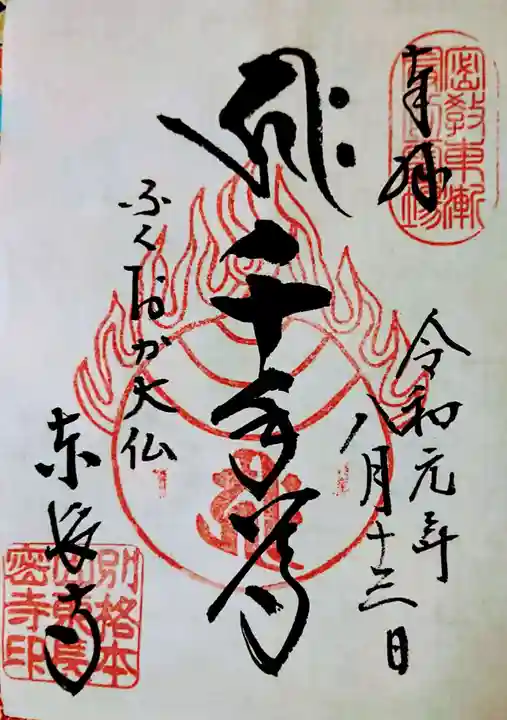 奉拝
密教東漸
令和元年
八月十三日
千手尊
ふくおか大仏
東長寺
別格本
山東長
密寺印